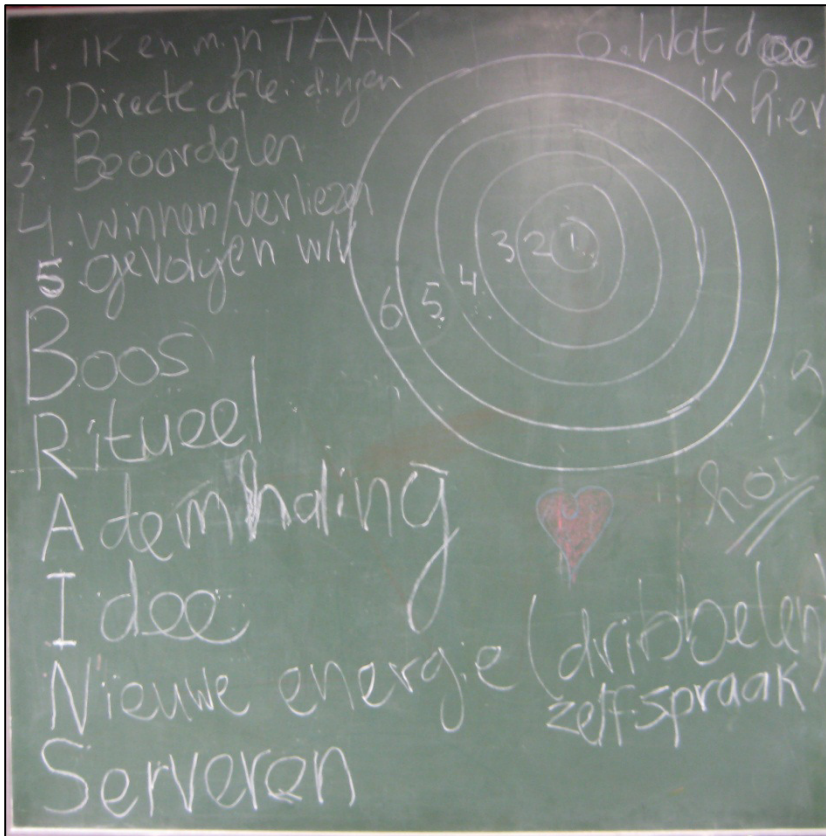 1. Ik en mijn TAAK
2. Directe afleidingen
3. Beoordelen
4. winnen/verliezen
5. gevolgen w/v
6. Wat doe
ik hier
1
2
3
4
5
6
Boos
Ritueel
Ademhaling
Idee
Nieuwe energie (dribbelen)
zelfspraak
Serveren
hoi